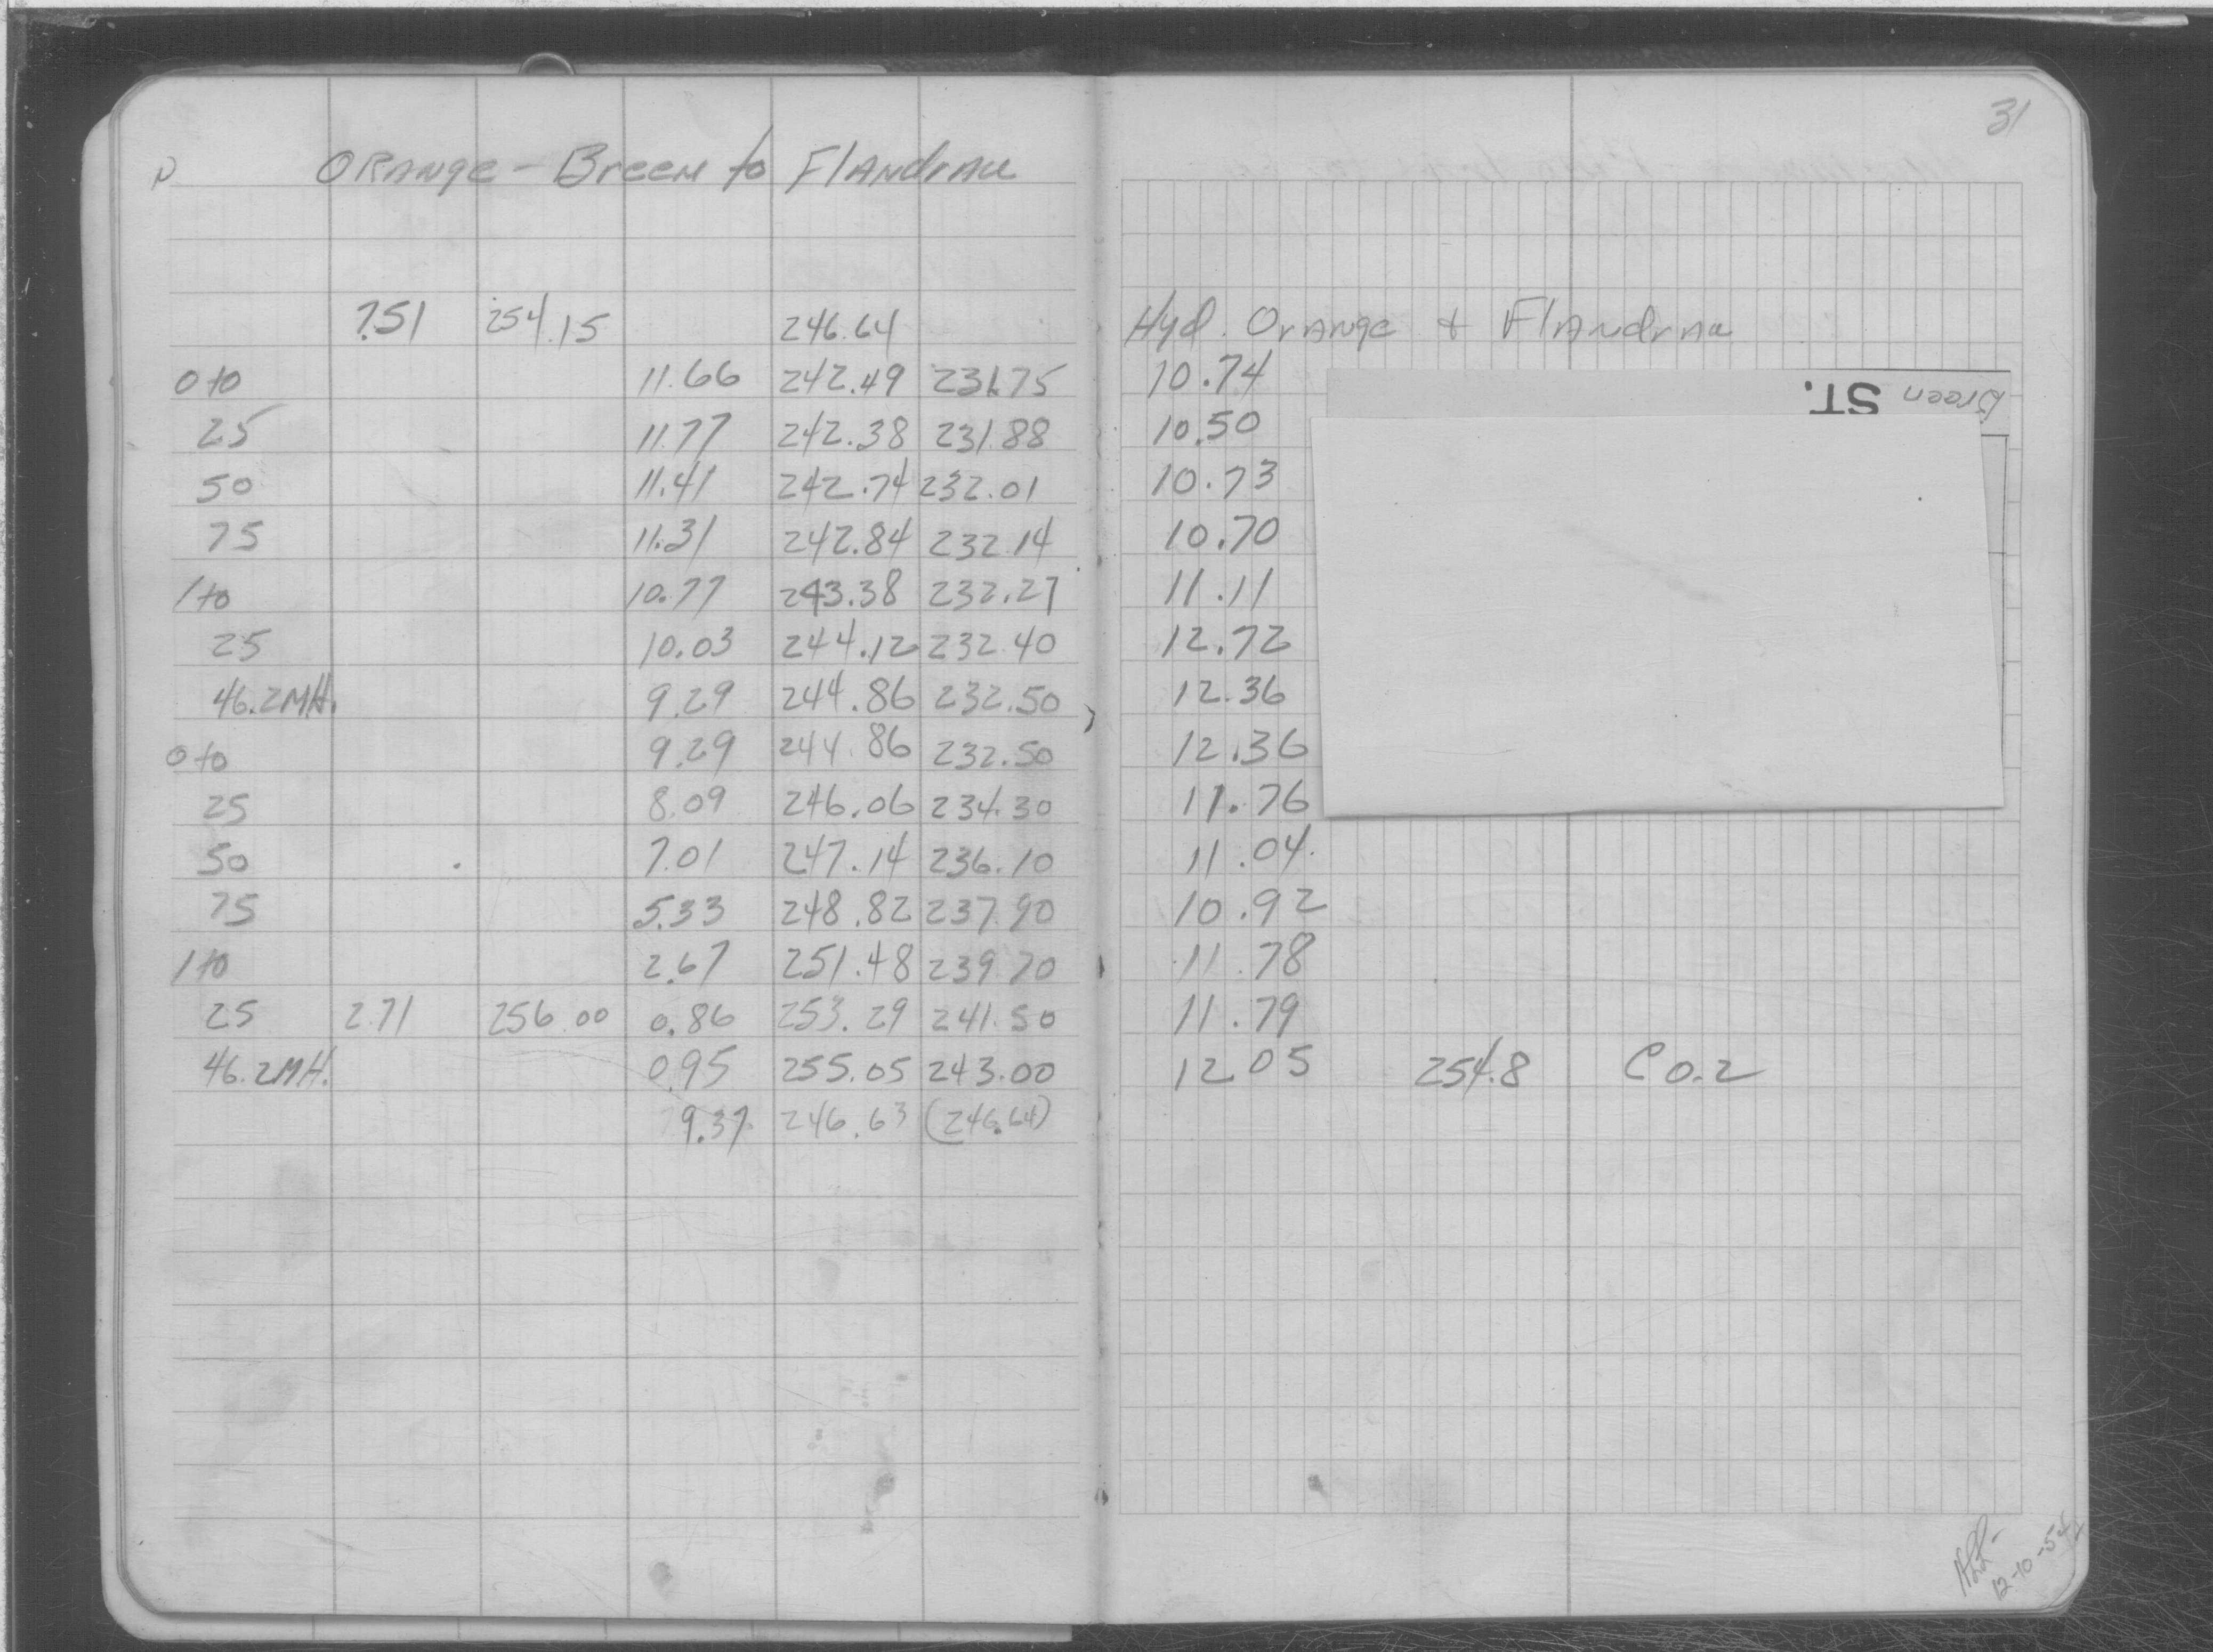 31
N ORANge - Breen to FlANdrAu
7.51 254.15 246.64 Hyd. OrANge + FlANdrAu
0+0 11.66 242.49 231.75 10.74
Breen ST.
25 11.77 242.38 231.88 10.50
50 11.41 242.74 232.01 10.73
75 11.31 242.84 232.14 10.70
1+0 10.77 243.38 232.27 11.11
25 10.03 244.12 232.40 12.72
46.2 MH. 9.29 244.86 232.50 12.36
0+0 9.29 244.86 232.50 12.36
25 8.09 246.06 234.30 11.76
50 7.01 247.14 236.10 11.04
75 5.33 248.82 237.90 10.92
1+0 2.67 251.48 239.70 11.78
25 2.71 256.00 0.86 253.29 241.50 11.79
46.2 MH. 0.95 255.05 243.00 12.05 254.8 C 0.2
9.37 246.63 (246.64)
12-10-54